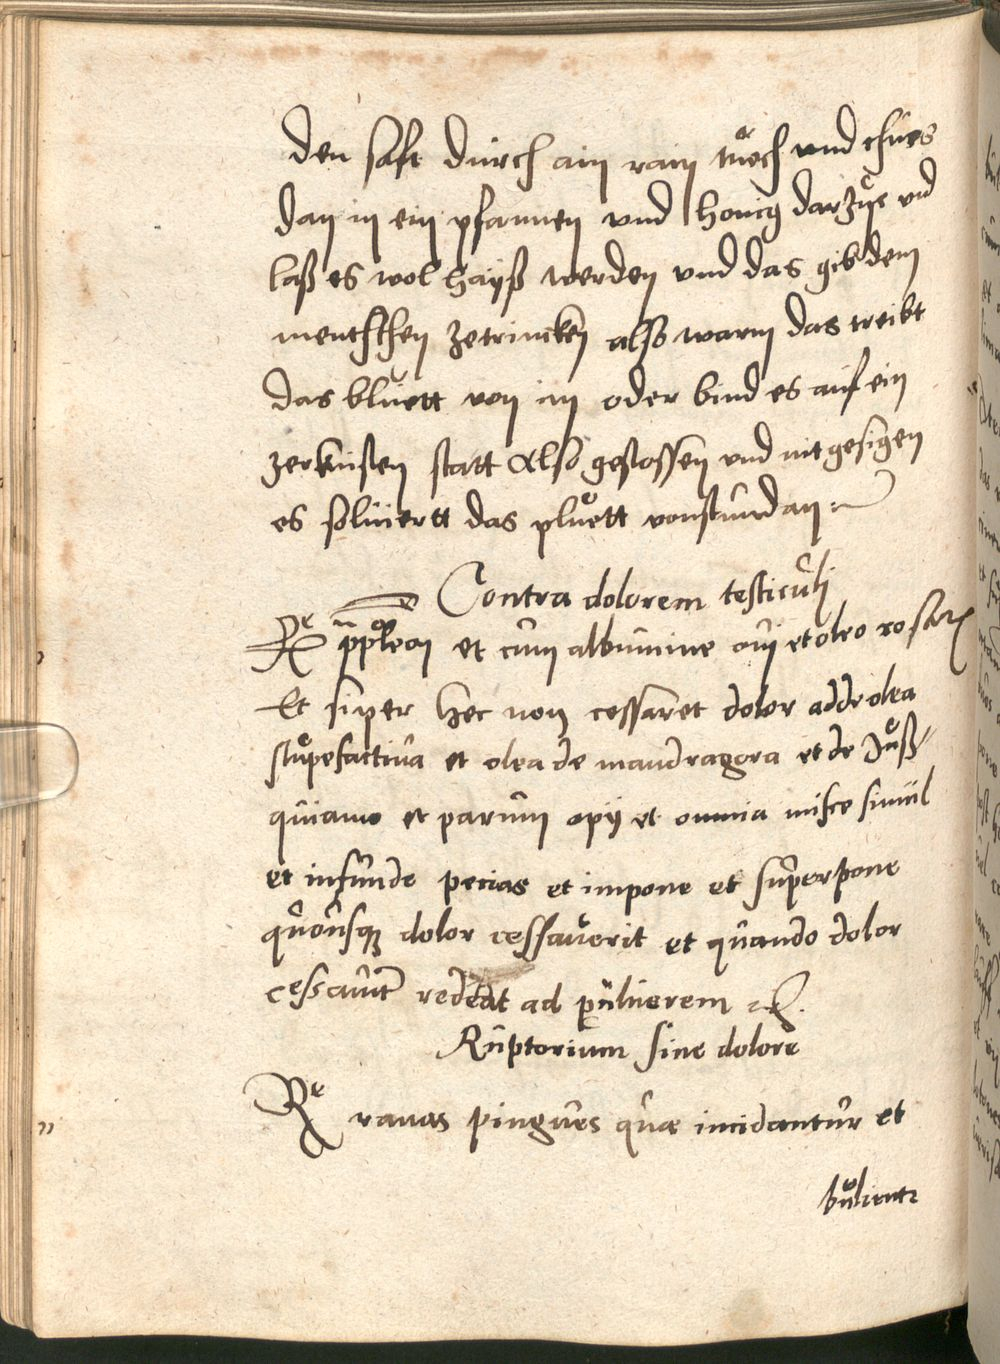 den saft durch ain rain tuͦech und thues
dan in ein pfannen vnd honig darzuͦe vnd
laß es wol haÿß werden vnd das gib dem
menthschen zetrincken also warm das treibt
das bluett von im oder bind es auf ein
zerknisten statt also gestossen vnd nit gesigen
es soluiertt das pluͦett vonstundan
Contra dolorem testiculj
Re et cum albumine ouj et oleo rosar
Et si per hec non cessaret dolor adde olea
stupefactiua et olea de mandragora et de Juß
quiamo et parum opij et omnia misce simul
et infunde pecias et impone et superpone
quousq dolor cessauerit et quando dolor
cessauit redeat ad puluerem
Ruptorium sine dolore
Re ranas pingues quæ incidantur et
buͦlient